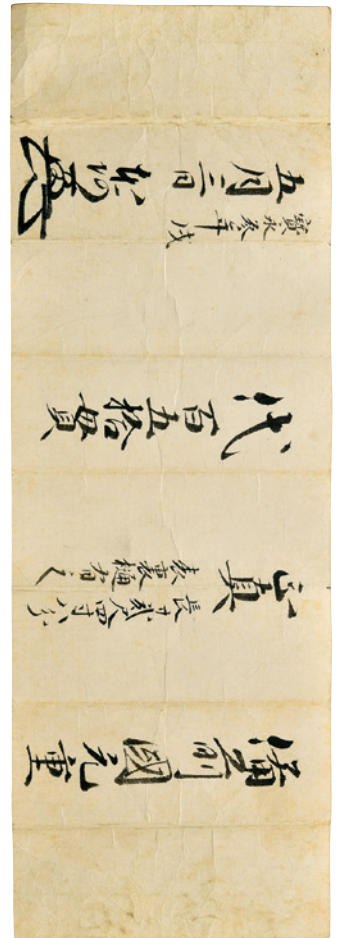 備前國元重
正真
長サ貳尺四寸八分
表裏樋有之
代百五拾貫
寶永参年戌
五月三日 本阿